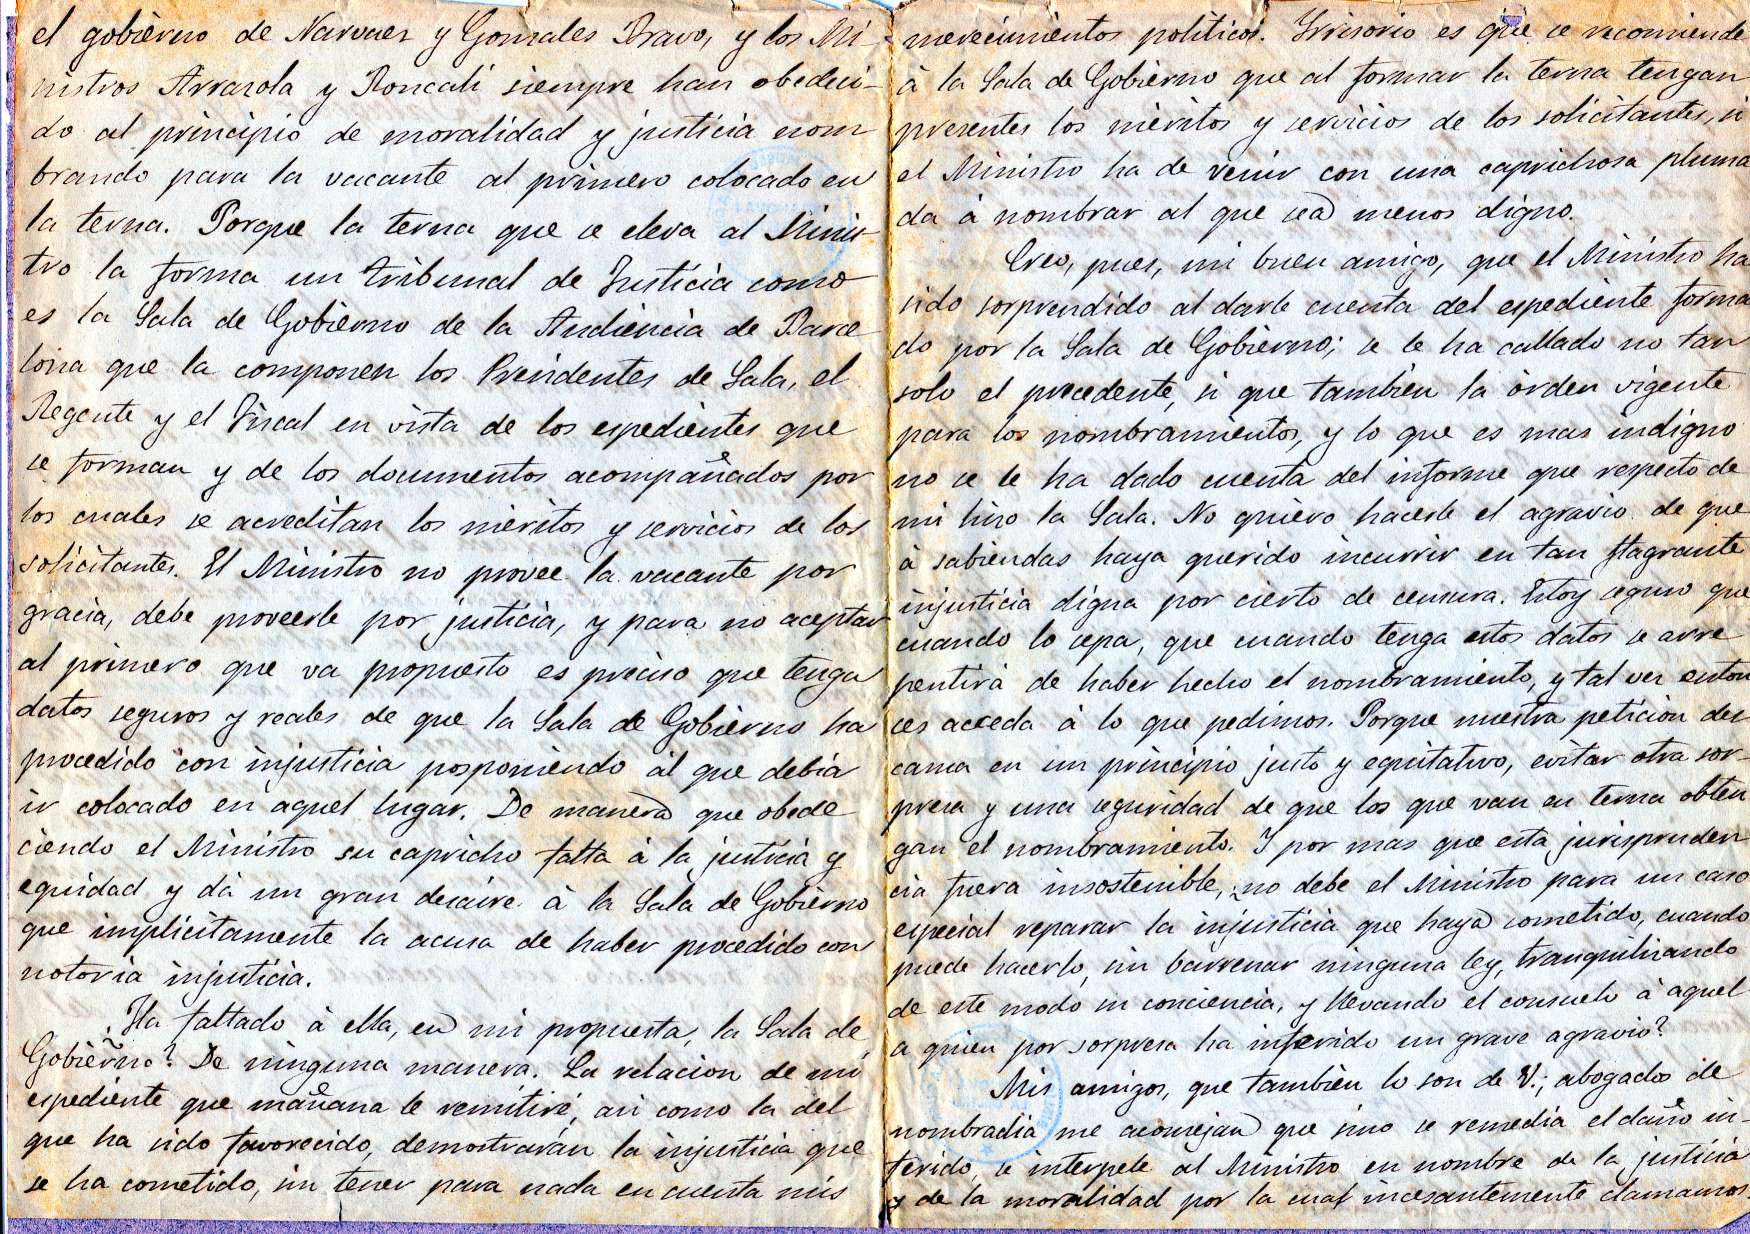 el gobierno de Narvaez y Gonzales Bravo, y los Mi-
nistros Arrazola y Roncali siempre han obedeci-
do al principio de moralidad y justicia nom
brando para la vacante al primero colocado en
la terna. Porque la terna que se eleva al Minis
tro la forma un Tribunal de Justicia como
es la Sala de Gobierno de la Audiencia de Barce
lona que la componen los Presidentes de Sala, el
Regente y el Fiscal en vista de los espedientes que
se forman y de los documentos acompañados por
los cuales se acreditan los méritos y servicios de los
solicitantes. El Ministro no provee la vacante por
gracia, debe proveerle por justicia, y para no aceptar
al primero que va propuesto es preciso que tenga
datos seguros y reales de que la Sala de Gobierno ha
procedido con injusticia posponiendo al que debia
ir colocado en aquel lugar. De manera que obede
ciendo el Ministro su capricho falta á la justicia y
equidad y dá un gran desaire á la Sala de Gobierno
que implicitamente la acusa de haber procedido con
notoria injusticia.
¿Ha faltado á ella, en mi propuesta, la Sala de
Gobierno? De ninguna manera. La relacion de mi
espediente que mañana le remitiré, asi como la del
que ha sido favorecido, demostrarán la injusticia que
se ha cometido, sin tener para nada en cuenta mis
merecimientos politicos. Irrisorio es que se recomiende
á la Sala de Gobierno que al formar la terna tengan
presentes los méritos y servicios de los solicitantes, si
el Ministro ha de venir con una caprichosa pluma
da á nombrar al que sea menos digno.
Creo, pues, mi buen amigo, que el Ministro ha
sido sorprendido al darle cuenta del espediente forma
do por la Sala de Gobierno; se le ha callado no tan
solo el precedente, si que tambien la órden vigente
para los nombramientos, y lo que es mas indigno
no se le ha dado cuenta del informe que respecto de
mi hizo la Sala. No quiero hacerle el agravio de que
á sabiendas haya querido incurrir en tan flagrante
injusticia digna por cierto de censura. Estoy seguro que
cuando lo sepa, que cuando tenga estos datos se arre
pentirá de haber hecho el nombramiento, y tal vez enton
ces acceda á lo que pedimos. Porque nuestra peticion des
cansa en un principio justo y equitativo, evitar otra sor-
presa y una seguridad de que los que van en terna obten
gan el nombramiento. Y por mas que esta jurispruden
cia fuera insostenible, ¿no debe el Ministro para un caso
especial reparar la injusticia que haya cometido, cuando
puede hacerlo, sin barrenar ninguna ley, tranquilizando
de este modo su conciencia, y llevando el consuelo á aquel
a quien por sorpresa ha inferido un grave agravio?
Mis amigos, que tambien lo son de V.; abogados de
nombradia me aconsejan que sino se remedia el daño in-
ferido, se interpele al Ministro en nombre de la justicia
y de la moralidad por la cual incesantemente clamamos.